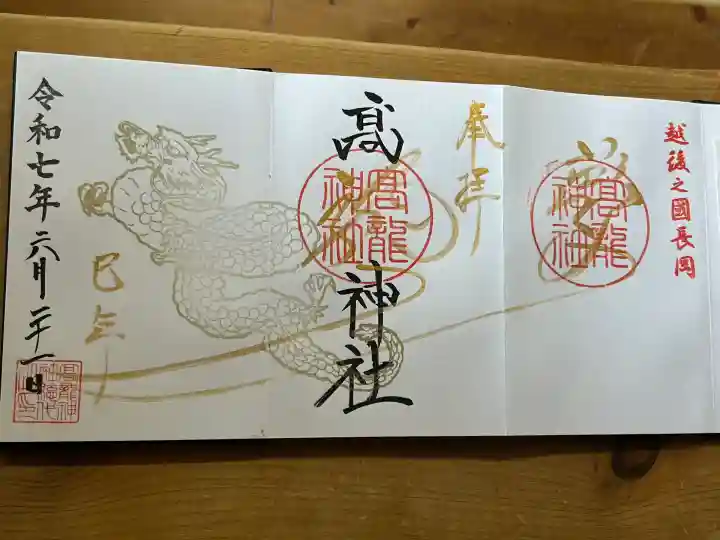 越後之國長岡
高龍
神社
奉拝
髙
神社
高龍
神社
巳年
令和七年六月二十一日